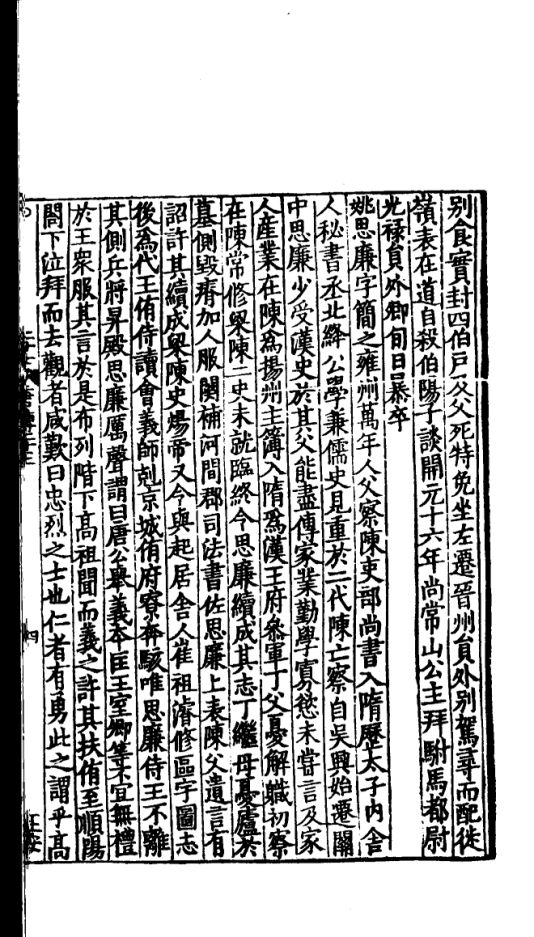 别食實封四伯戸父父死特免坐左遷晉州員外别駕尋而配徙
嶺表在道自殺伯陽子談開元十六年尚常山公主拜駙馬都尉
光禄員外卿旬日暴卒
姚思廉字簡之雍州萬年人父察陳吏部尚書入隋歷太子内舎
人秘書丞北絳公學兼儒史見重於二代陳亡察自吳興始遷關
中思廉少受漢史於其父能盡傳家業勤學寡慾未嘗言及家
人産業在陳爲揚州主簿入隋爲漢王府叅軍丁父憂解職初察
在陳常修梁陳二史未就臨終令思廉續成其志丁繼母憂廬於
墓側毀瘠加人服闋補河間郡司法書佐思廉上表陳父遺言有
詔許其續成梁陳史煬帝又令與起居舎人崔祖濬修區宇圖志
後爲代王侑侍讀會義師剋京城侑府寮奔駭唯思廉侍王不離
其側兵將昇殿思廉厲聲謂曰唐公舉義本匡王室卿等不宜無禮
於王衆服其言於是布列階下髙祖聞而義之許其扶侑至順陽
閤下泣拜而去觀者咸歎曰忠烈之士也仁者有勇此之謂乎髙
四